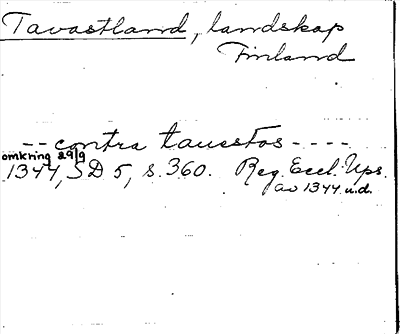 Tavastland, landskap
Finland
-- contra tauestos ----
omkring 29/9
1344, SD 5, s. 360. Reg. Eccl. Ups.
av 1344 u.d.